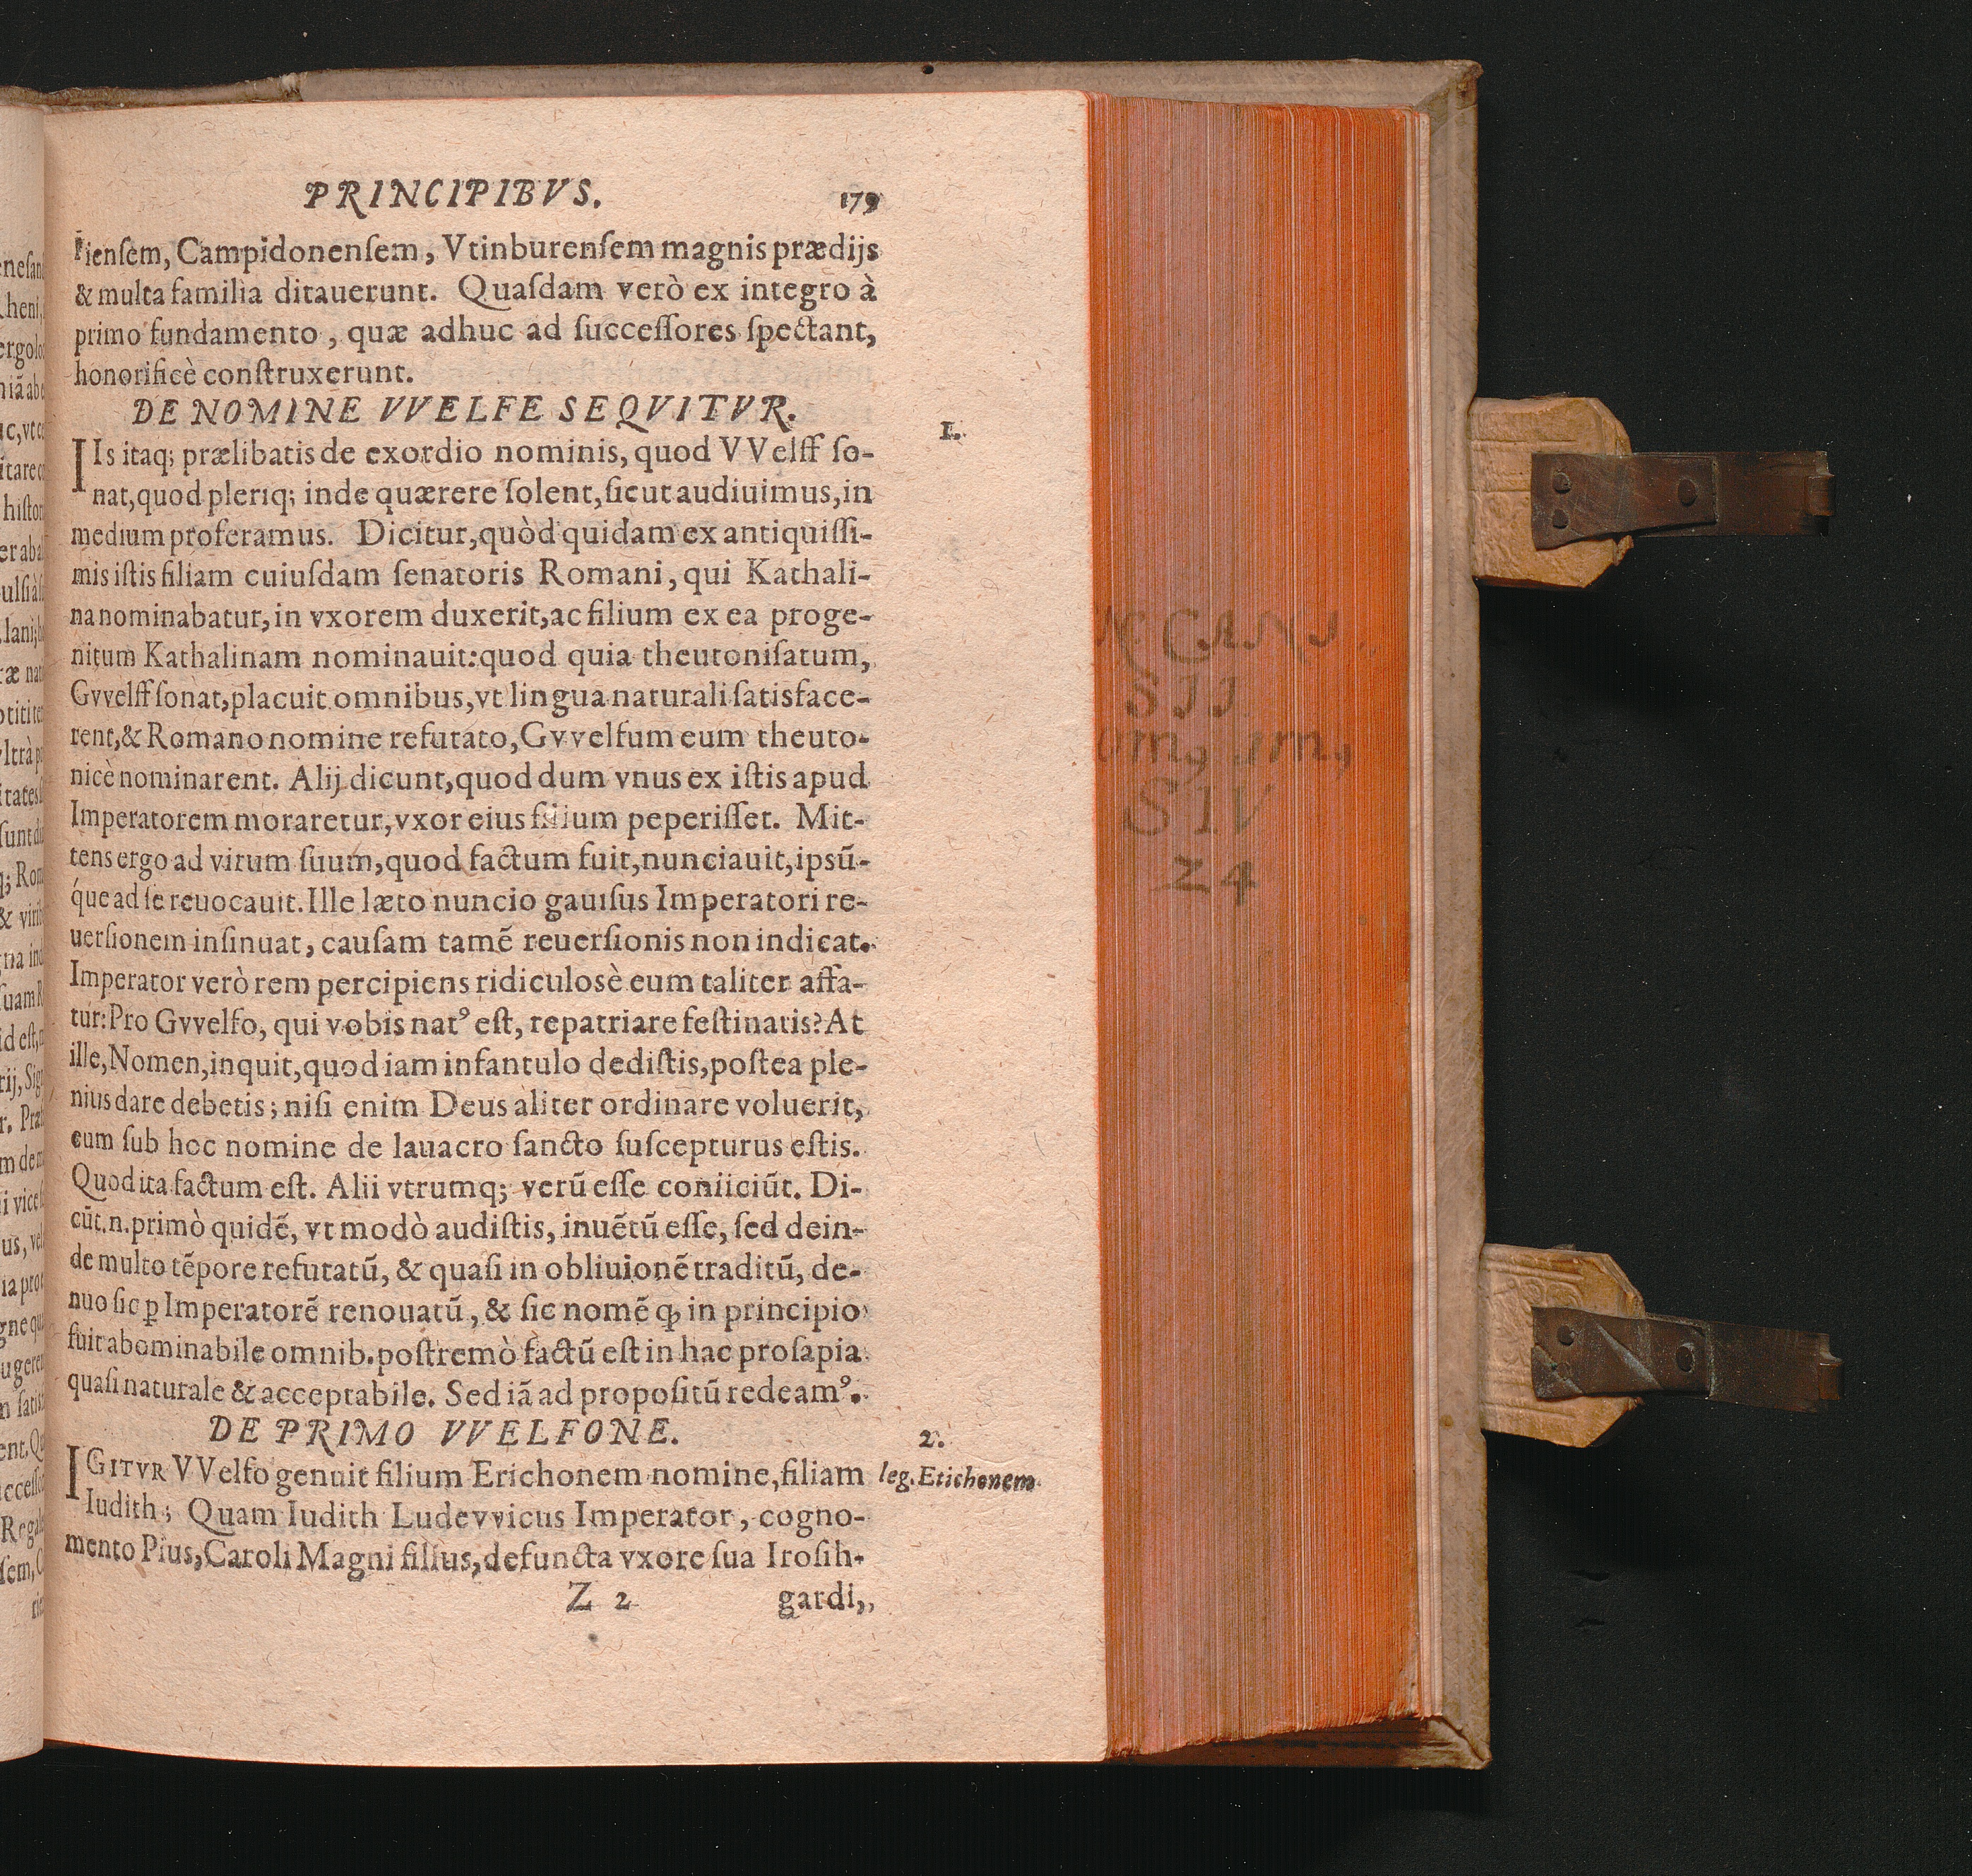 PRINCIPIBVS. 179
ienſem, Campidonenſem, Vtinburenſem magnis prædijs
& multa familia ditauerunt. Quaſdam verò ex integro à
primo fundamento, quæ adhuc ad ſucceſſores ſpectant,
honorificè conſtruxerunt.
DE NOMINE VVELFE SEQVITVR.
1.
IIs itaq; prælibatis de exordio nominis, quod VVelff ſo-
nat, quod pleriq; inde quærere ſolent, ſicut audiuimus, in
medium proferamus. Dicitur, quòd quidam ex antiquiſſi-
mis iſtis filiam cuiuſdam ſenatoris Romani, qui Kathali-
na nominabatur, in vxorem duxerit, ac filium ex ea proge-
nitum Kathalinam nominauit: quod quia theutoniſatum,
Gvvelff ſonat, placuit omnibus, vt lingua naturali ſatisface-
rent, & Romano nomine refutato, Gvvelfum eum theuto-
nicè nominarent. Alij dicunt, quod dum vnus ex iſtis apud
Imperatorem moraretur, vxor eius filium peperiſſet. Mit-
tens ergo ad virum ſuum, quod factum fuit, nunciauit, ipsũ-
q́ue ad ſe reuocauit. Ille læto nuncio gauiſus Imperatori re-
uerſionem inſinuat, cauſam tamẽ reuerſionis non indicat.
Imperator verò rem percipiens ridiculosè eum taliter affa-
tur: Pro Gvvelfo, qui vobis natꝰ eſt, repatriare feſtinatis? At
ille, Nomen, inquit, quod iam infantulo dediſtis, poſtea ple-
nius dare debetis; niſi enim Deus aliter ordinare voluerit,
eum ſub hoc nomine de lauacro ſancto ſuſcepturus eſtis.
Quod ita factum eſt. Alii vtrumq; verũ eſſe coniiciũt. Di-
cũt. n. primò quidẽ, vt modò audiſtis, inuẽtũ eſſe, ſed dein-
de multo tẽpore refutatũ, & quaſi in obliuionẽ traditũ, de-
nuo ſic ꝑ Imperatorẽ renouatũ, & ſic nomẽ ꝙ in principio
fuit abominabile omnib. poſtremò factũ eſt in hac proſapia
quaſi naturale & acceptabile. Sed iã ad propoſitũ redeamꝰ.
DE PRIMO VVELFONE.
2.
IGITVR VVelfo genuit filium Erichonem nomine, filiam leg. Etichonem
Iudith; Quam Iudith Ludevvicus Imperator, cogno-
mento Pius, Caroli Magni filius, defuncta vxore ſua Iroſih-
Z 2 gardi,
SIV
24